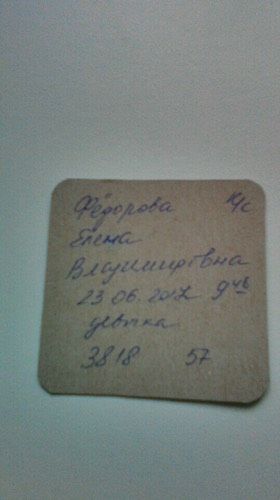 Фёдорова к/с
Елена
Владимировна
23.06.2017 9 ч 45
девочка
3818 57